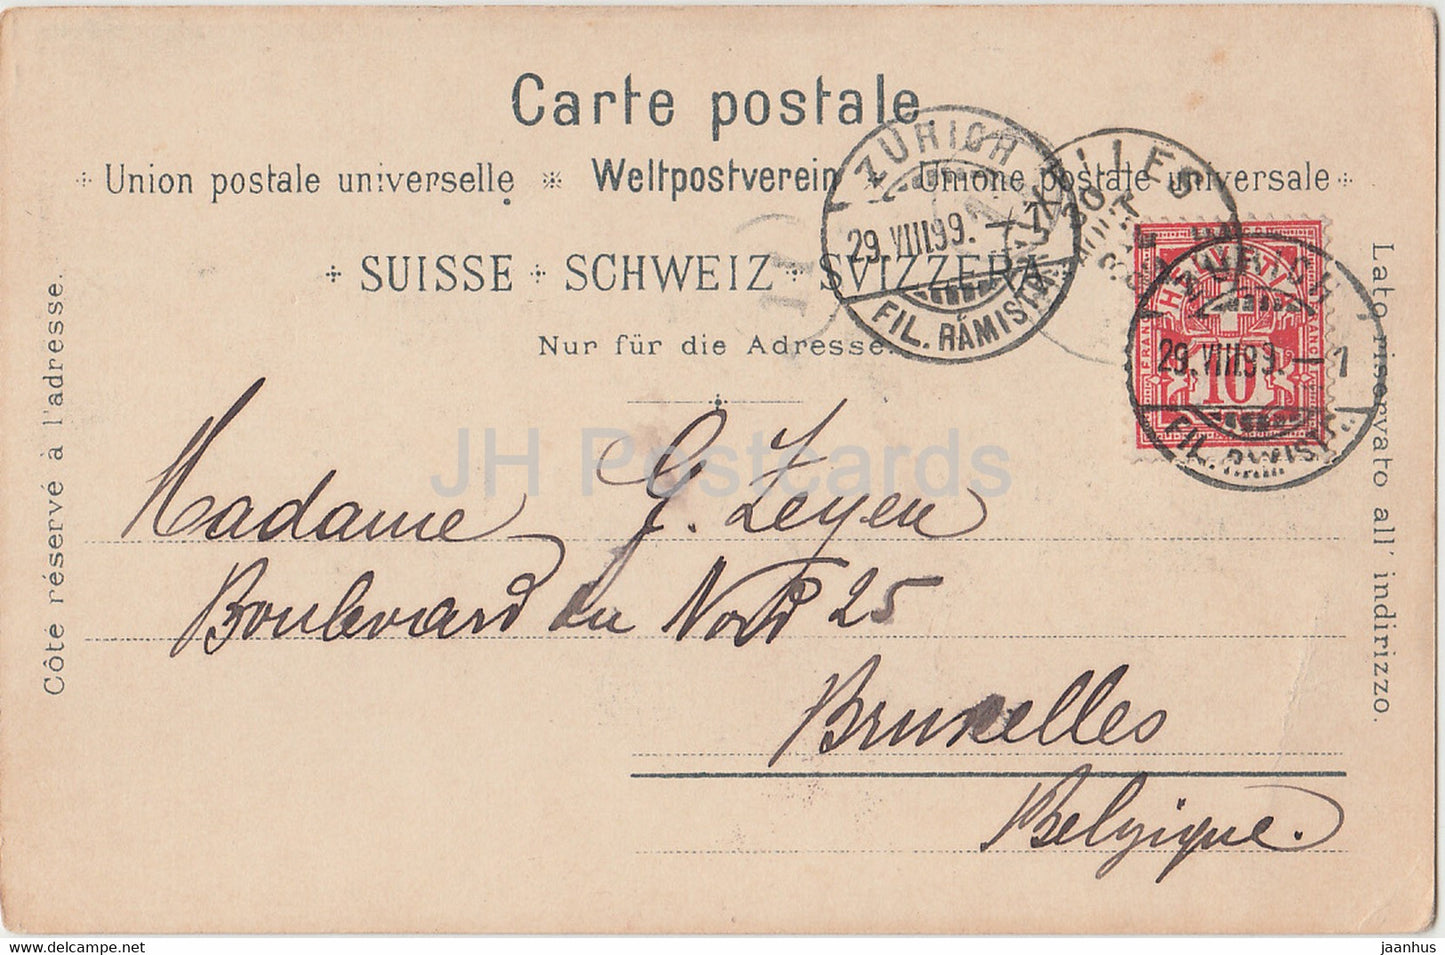 Carte postale
Union postale universelle * Weltpostverein * Unione postale universale
SUISSE + SCHWEIZ + SVIZZERA
Nur für die Adresse.
Côté réservé à l'adresse.
Lato riservato all' indirizzo.
ZÜRICH
29.VIII.99.–7
FIL. RÄMISTR.
30
AOUT
HELVETIA
FRANCO
10
29.VIII.99.–7
JH Postcards
Madame G. Zeyen
Boulevard du Nord 25
Bruxelles
Belgique.
www.delcampe.net
jaanhus